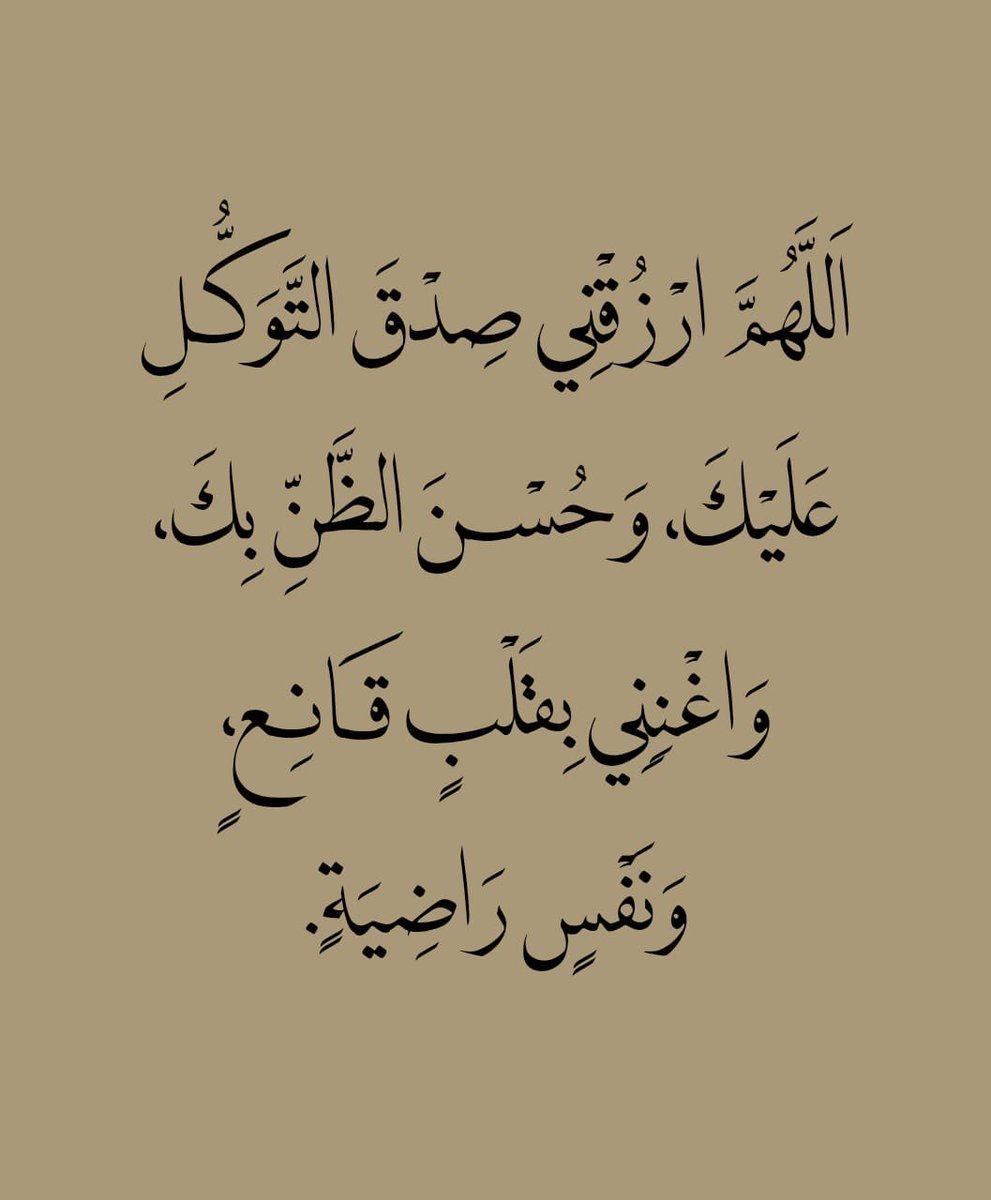 اَللَّهُمَّ ارْزُقْنِي صِدْقَ التَّوَكُّلِ
عَلَيْكَ، وَحُسْنَ الظَّنِّ بِكَ،
وَاغْنِنِي بِقَلْبٍ قَانِعٍ،
وَنَفْسٍ رَاضِيَةٍ.